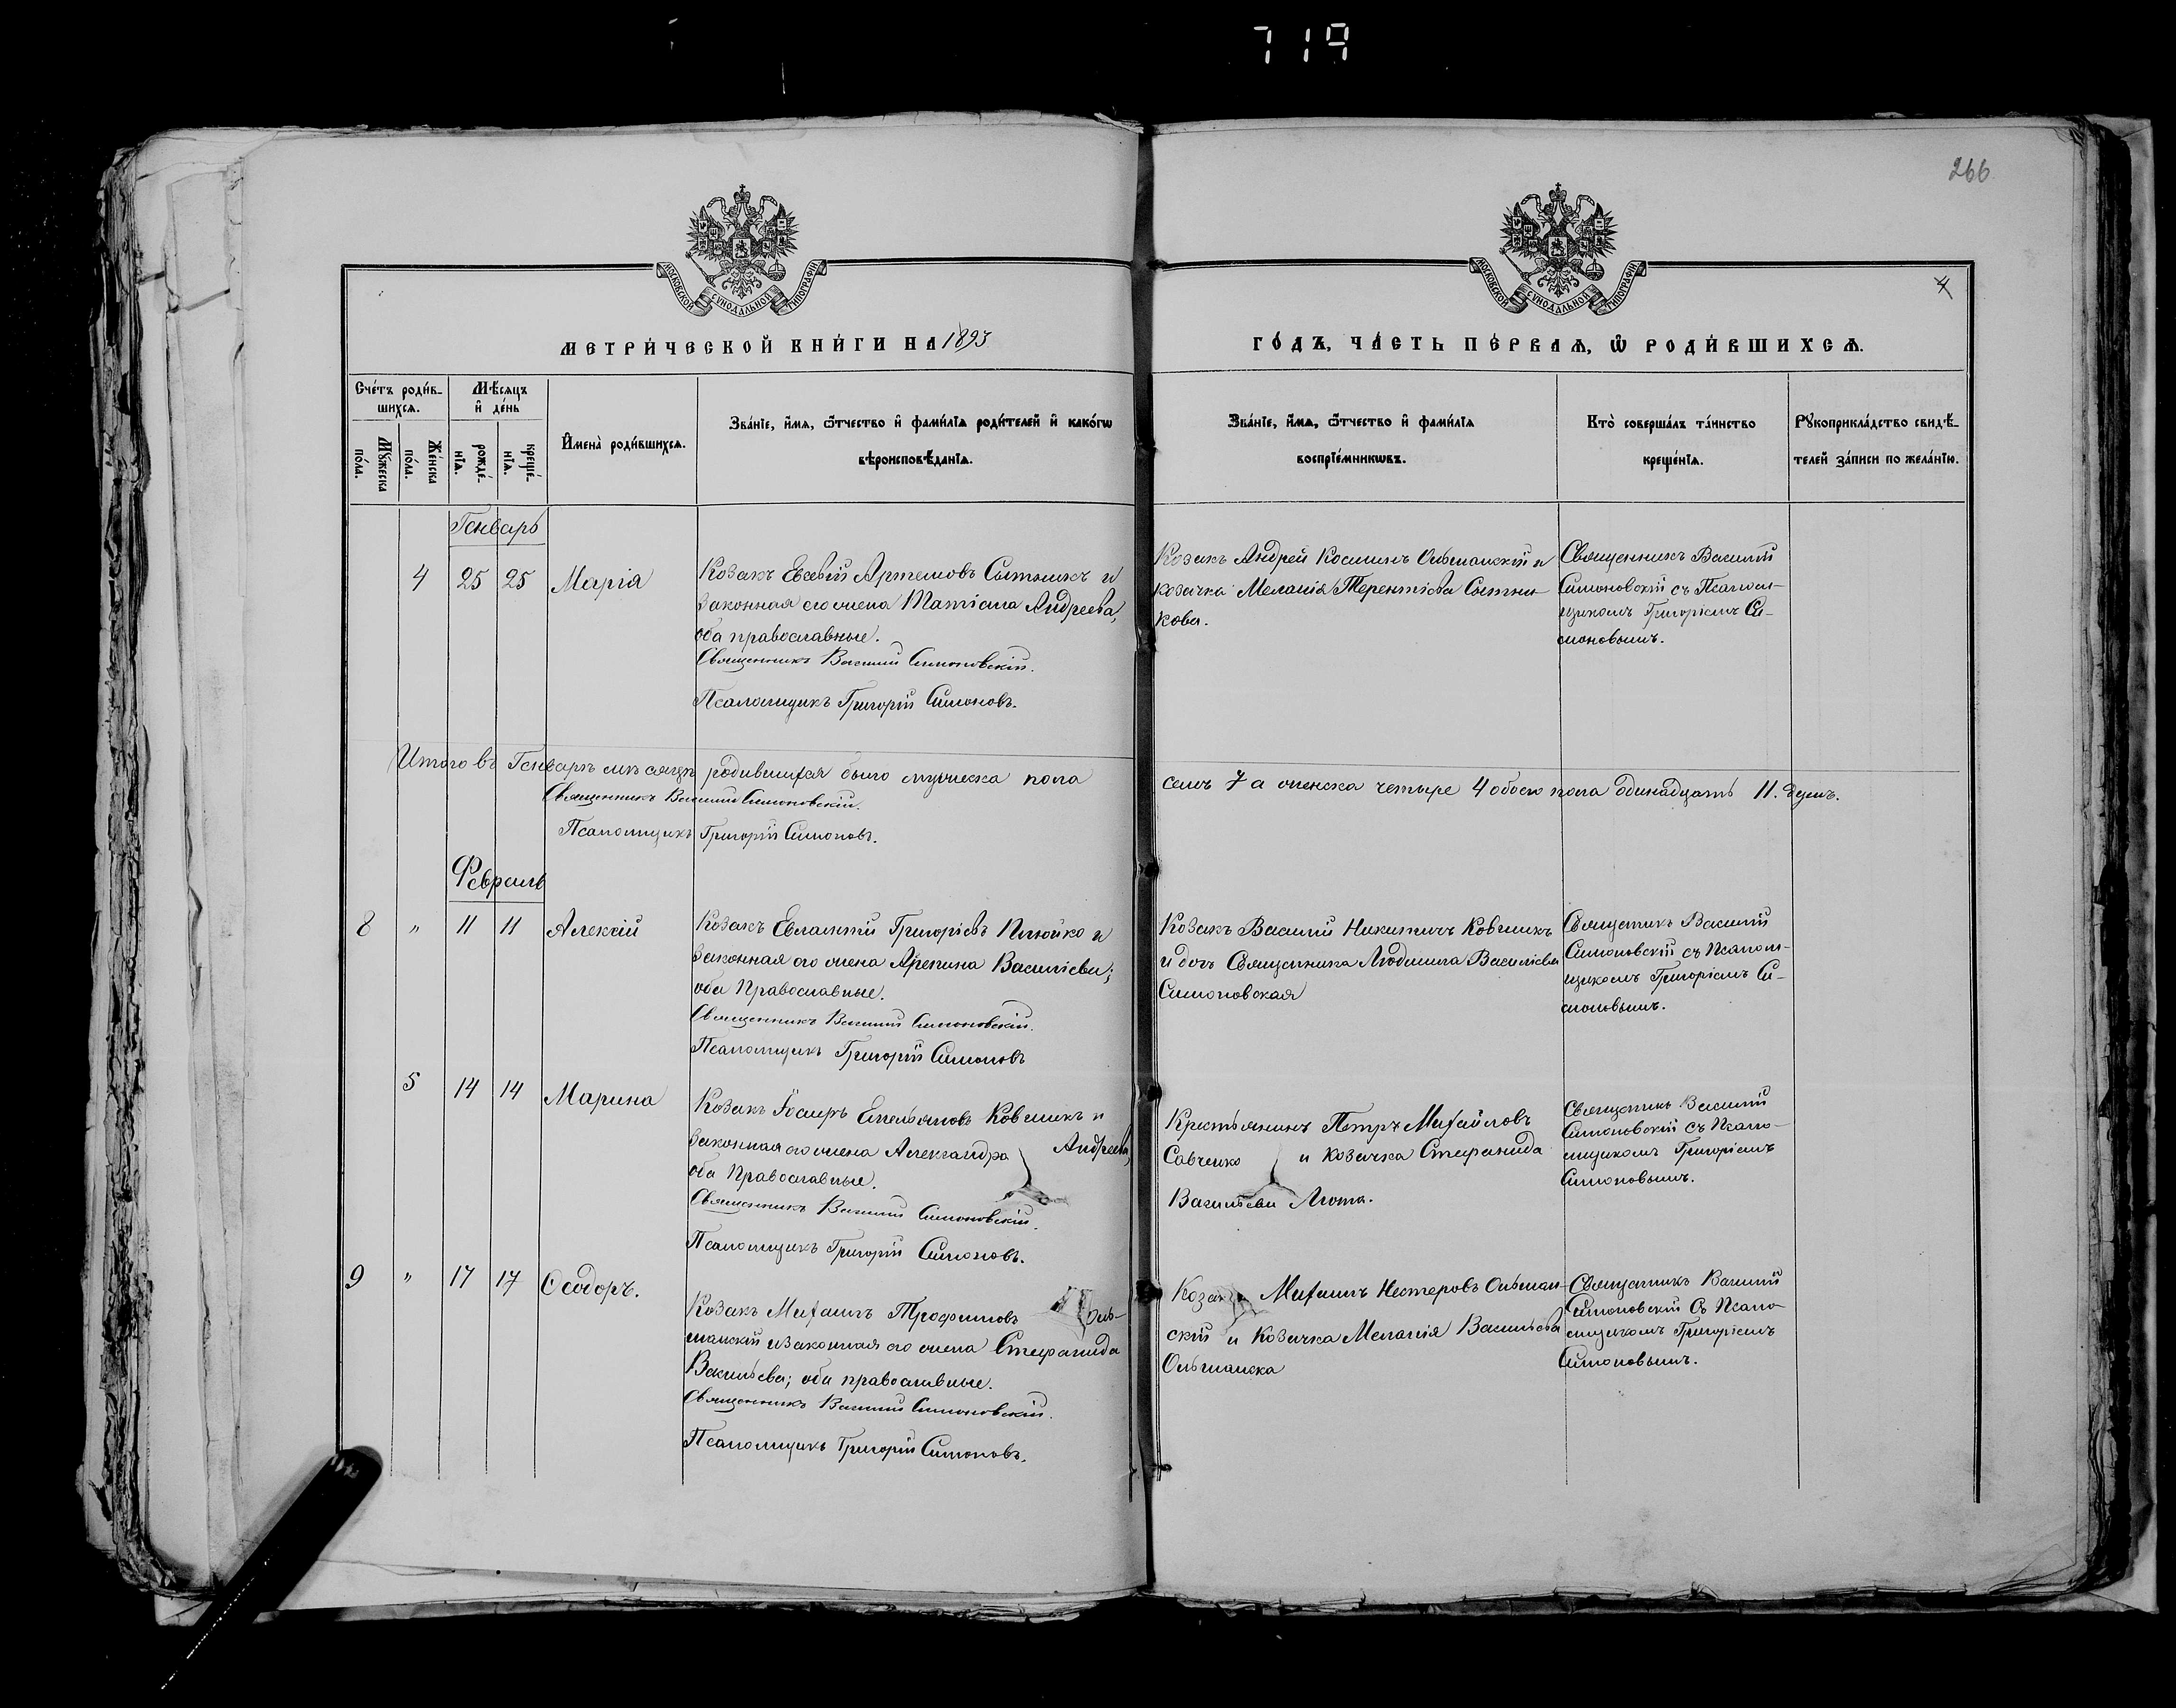 719
266
МОСКОВСКОЙ СѴНОДАЛЬНОЙ ТИПОГРАФІИ
МОСКОВСКОЙ СѴНОДАЛЬНОЙ ТИПОГРАФІИ
4
МЕТРИ́ЧЕСКОЙ КНИ́ГИ НА 1893
ГО́ДЪ, ЧА́СТЬ ПЕ́РВАѦ, Ѡ҆ РОДИ́ВШИХСѦ.
Сче́тъ роди́в-
шихсѧ.
Мѣ́сяцъ
и҆ де́нь
Мꙋ́жеска
по́ла.
Же́нска
по́ла.
рожде́-
нїѧ.
креще́-
нїѧ.
И҆мена̀ роди́вшихсѧ.
Зва́нїе, и҆́мѧ, ѻ҆́тчество и҆ фами́лїѧ роди́телей и҆ како́гѡ
вѣроисповѣ́данїѧ.
Зва́нїе, и҆́мѧ, ѻ҆́тчество и҆ фами́лїѧ
воспрїе́мникѡвъ.
Кто̀ соверша́лъ та́инство
креще́нїѧ.
Рꙋкоприкла́дство свидѣ́-
телей за́писи по жела́нїю.
Генварь
4 25 25 Марія
Козакъ Евсевій Артемовъ Сытникъ и
законная его жена Татіана Андреева,
оба православные.
Священникъ Василий Симоновскій.
Псаломщикъ Григорій Симоновъ.
Козакъ Андрей Косминъ Ольшанскій и
козачка Меланія Терентіева Сытни-
кова.
Священникъ Василій
Симоновскій съ Псалом-
щикомъ Григоріемъ Си-
моновымъ.
Итого въ Генварѣ мѣсяцѣ родившихся было мужеска пола
семь 7 а женска четыре 4 обоего пола одинадцать 11. душъ.
Священникъ Василий Симоновскій.
Псаломщикъ Григорій Симоновъ.
Февраль
8 " 11 11 Алексій
Козакъ Евлампій Григоріевъ Плюйко и
законная его жена Агрепина Василіева;
оба Православные.
Священникъ Василий Симоновскій.
Псаломщикъ Григорій Симоновъ
Козакъ Василий Никитичъ Ковшикъ
и дочь Священника Людмила Василіева
Симоновская
Священникъ Василий
Симоновскій съ Псалом-
щикомъ Григоріемъ Си-
моновымъ.
5 14 14 Марина
Козакъ Іосифъ Емельяновъ Ковшикъ и
законная его жена Александра Андреева,
оба Православные.
Священникъ Василий Симоновскій.
Псаломщикъ Григорій Симоновъ.
Крестьянинъ Петръ Михайловъ
Савченко и Козачка Стефанида
Васильева Люта.
Священникъ Василий
Симоновскій съ Псало-
мщикомъ Григоріемъ
Симоновымъ.
9 " 17 17 Ѳеодоръ.
Козакъ Михаилъ Трофимовъ Оль-
шанскій и законная его жена Стефанида
Васильева; оба православные.
Священникъ Василий Симоновскій.
Псаломщикъ Григорій Симоновъ.
Козакъ Михаилъ Нестеровъ Ольшан-
скій и Козачка Меланія Васильева
Ольшанска
Священникъ Василий
Симоновскій Съ Псало-
мщикомъ Григоріемъ
Симоновымъ.